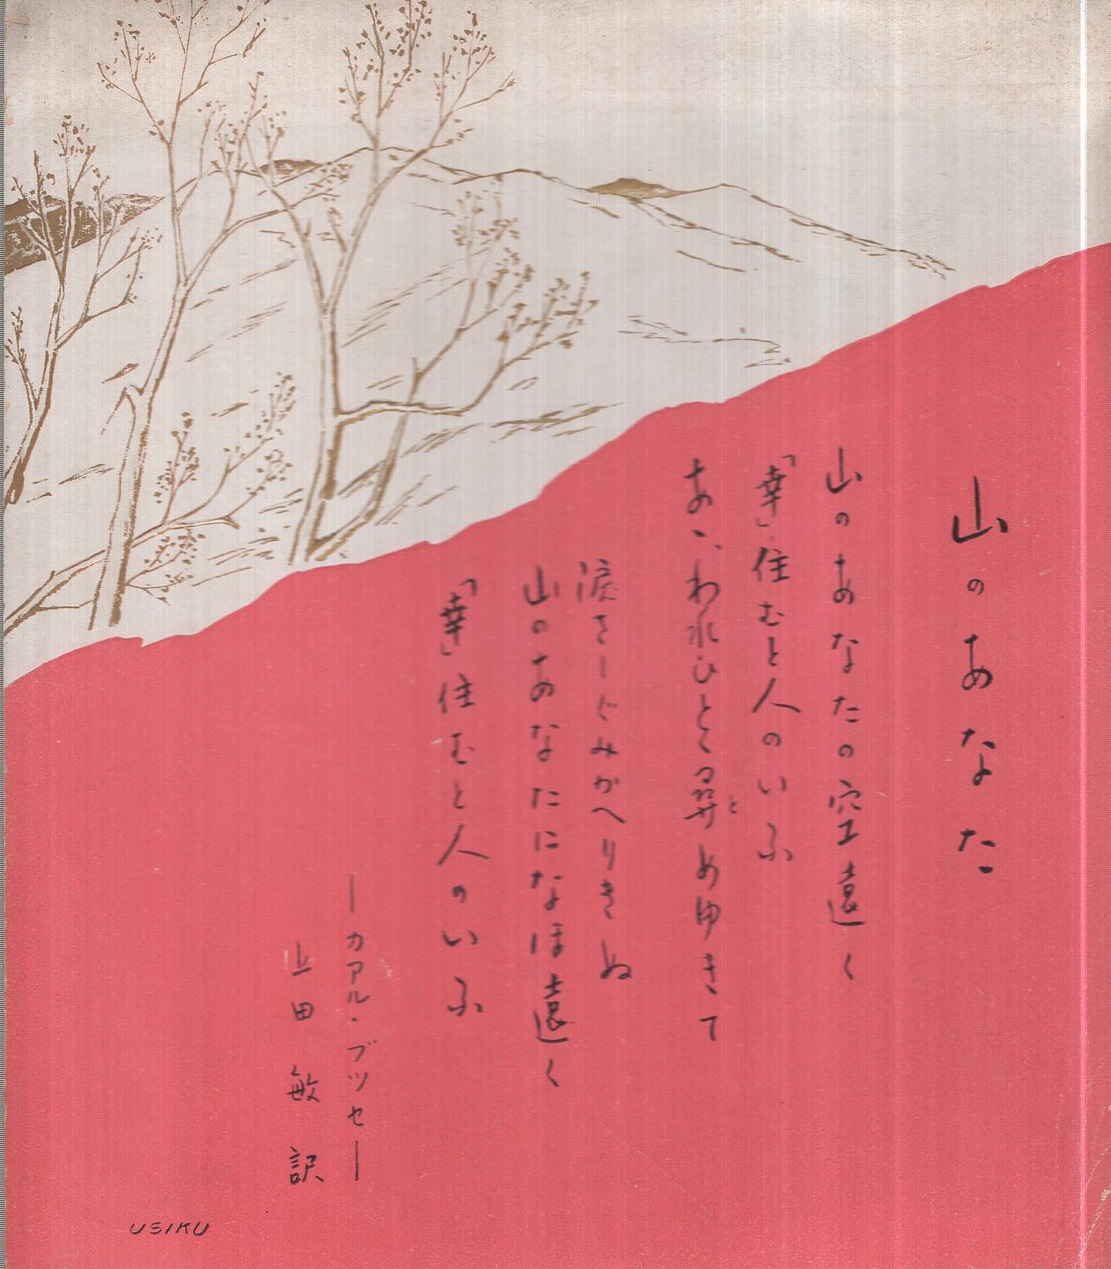 山のあなた
山のあなたの空遠く
「幸」住むと人のいふ
あゝ、われひとゝ尋めゆきて
と
涙さしぐみかへりきぬ
山のあなたになほ遠く
「幸」住むと人のいふ
―カアル・ブツセ―
上田敏訳
USIKU